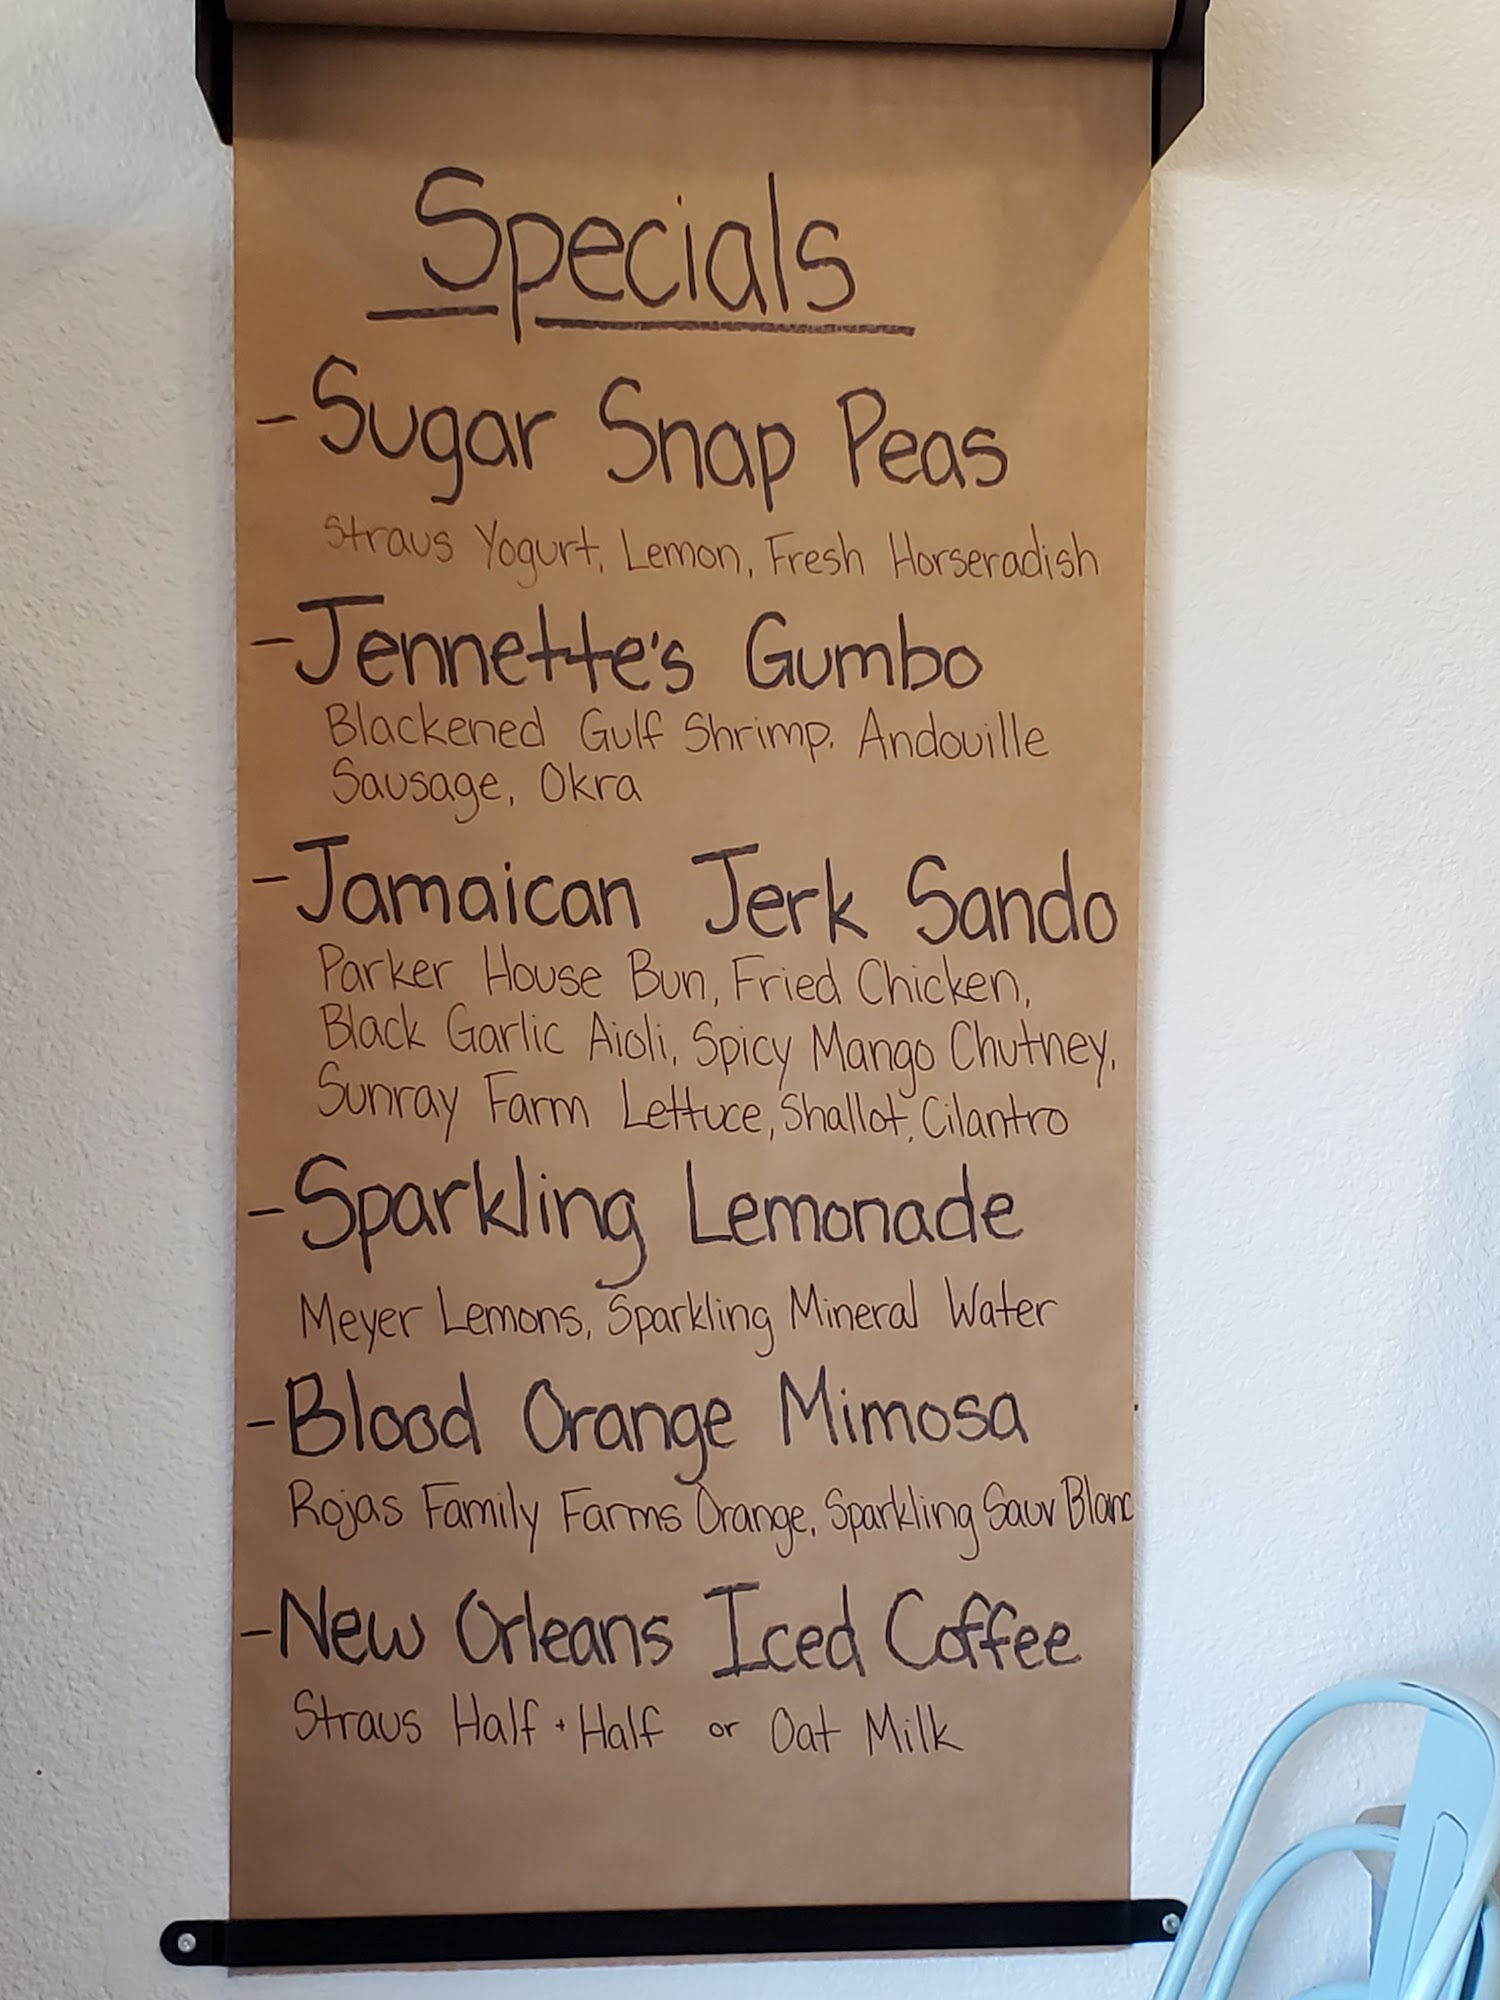 Specials
- Sugar Snap Peas
Straus Yogurt, Lemon, Fresh Horseradish
- Jennette's Gumbo
Blackened Gulf Shrimp, Andouille
Sausage, Okra
- Jamaican Jerk Sando
Parker House Bun, Fried Chicken,
Black Garlic Aioli, Spicy Mango Chutney,
Sunray Farm Lettuce, Shallot, Cilantro
- Sparkling Lemonade
Meyer Lemons, Sparkling Mineral Water
- Blood Orange Mimosa
Rojas Family Farms Orange, Sparkling Sauv Blanc
- New Orleans Iced Coffee
Straus Half + Half or Oat Milk